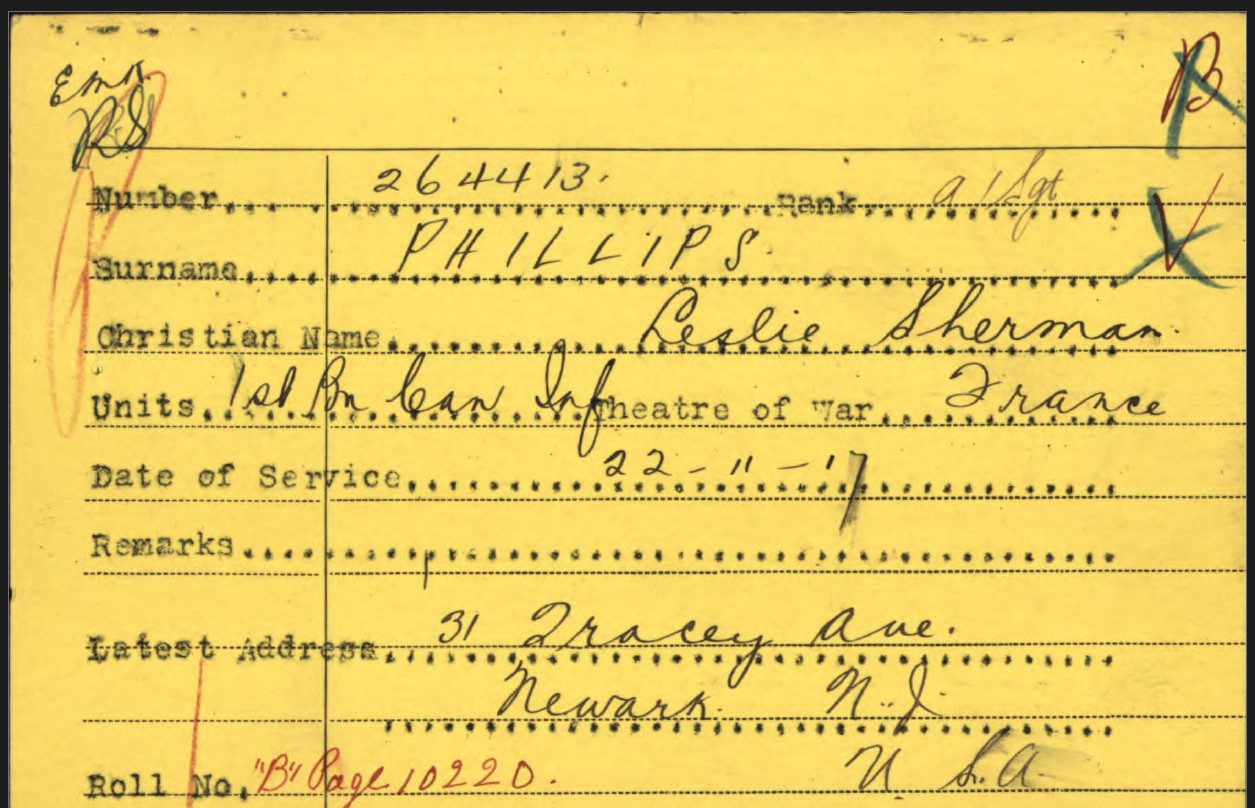 Emk
RS
B
Number 264413. Rank a/Sgt
Surname PHILLIPS.
Christian Name Leslie Sherman.
Units 1st Bn Can Inf Theatre of War France
Date of Service 22-11-17
Remarks
Latest Address 31 Tracey Ave.
Newark. N.J.
Roll No. "B" Page 10220. U S.A.